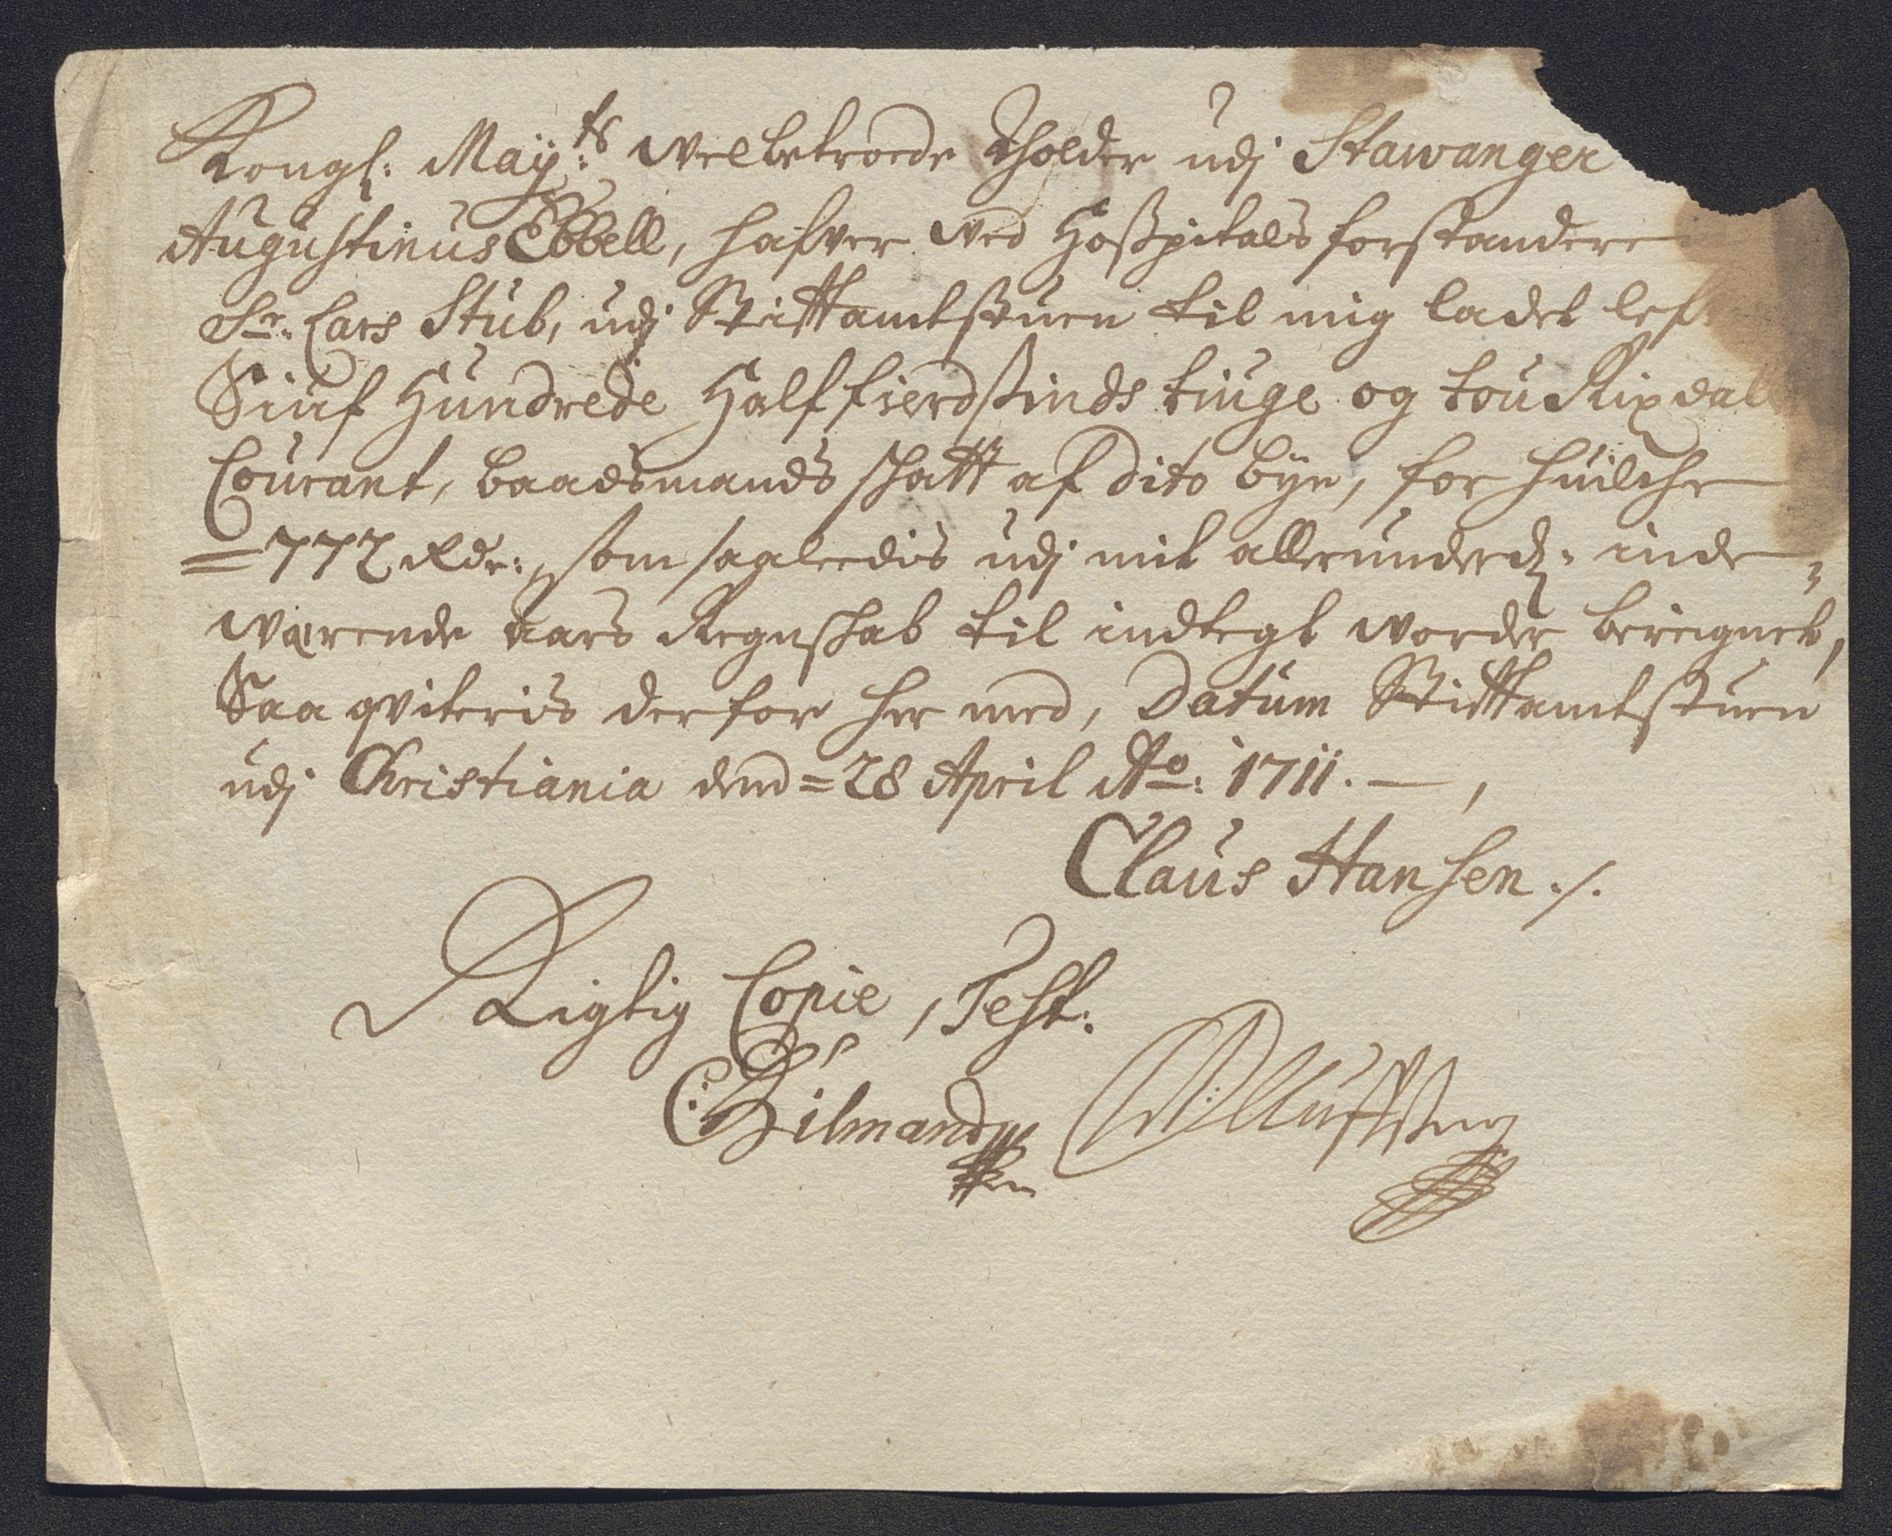 Kongl: Maÿ:ts welbetroede Tholder udj Stawanger
Augustinus Ebbell, hafver ved Hoßpitals forstandere
Sr. Lars Stub, udj Stifftamtstuen til mig ladet lef
Siuf Hundrede Half fierdsinds tiuge og tou Rixdall
Courant, baadsmands skatt af dito bÿe, for huilche
= 772 Rdr: som saaleedis udj mit allerunderd: inde
wærende aars Regnskab til indtegt vorder bereignet,
Saa qviteris derfor her med, Datum Stifftamtstuen
udj Christiania dend = 28 April Ao: 1711. —,
Claus Hansen ./.
Rigtig Copie, Test: